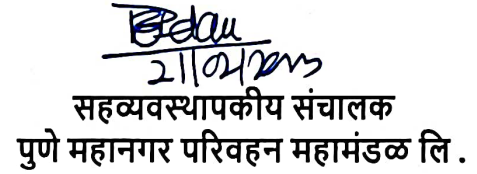 सहव्यवस्थापकीय संचालक
पुणे महानगर परिवहन महामंडळ लि .